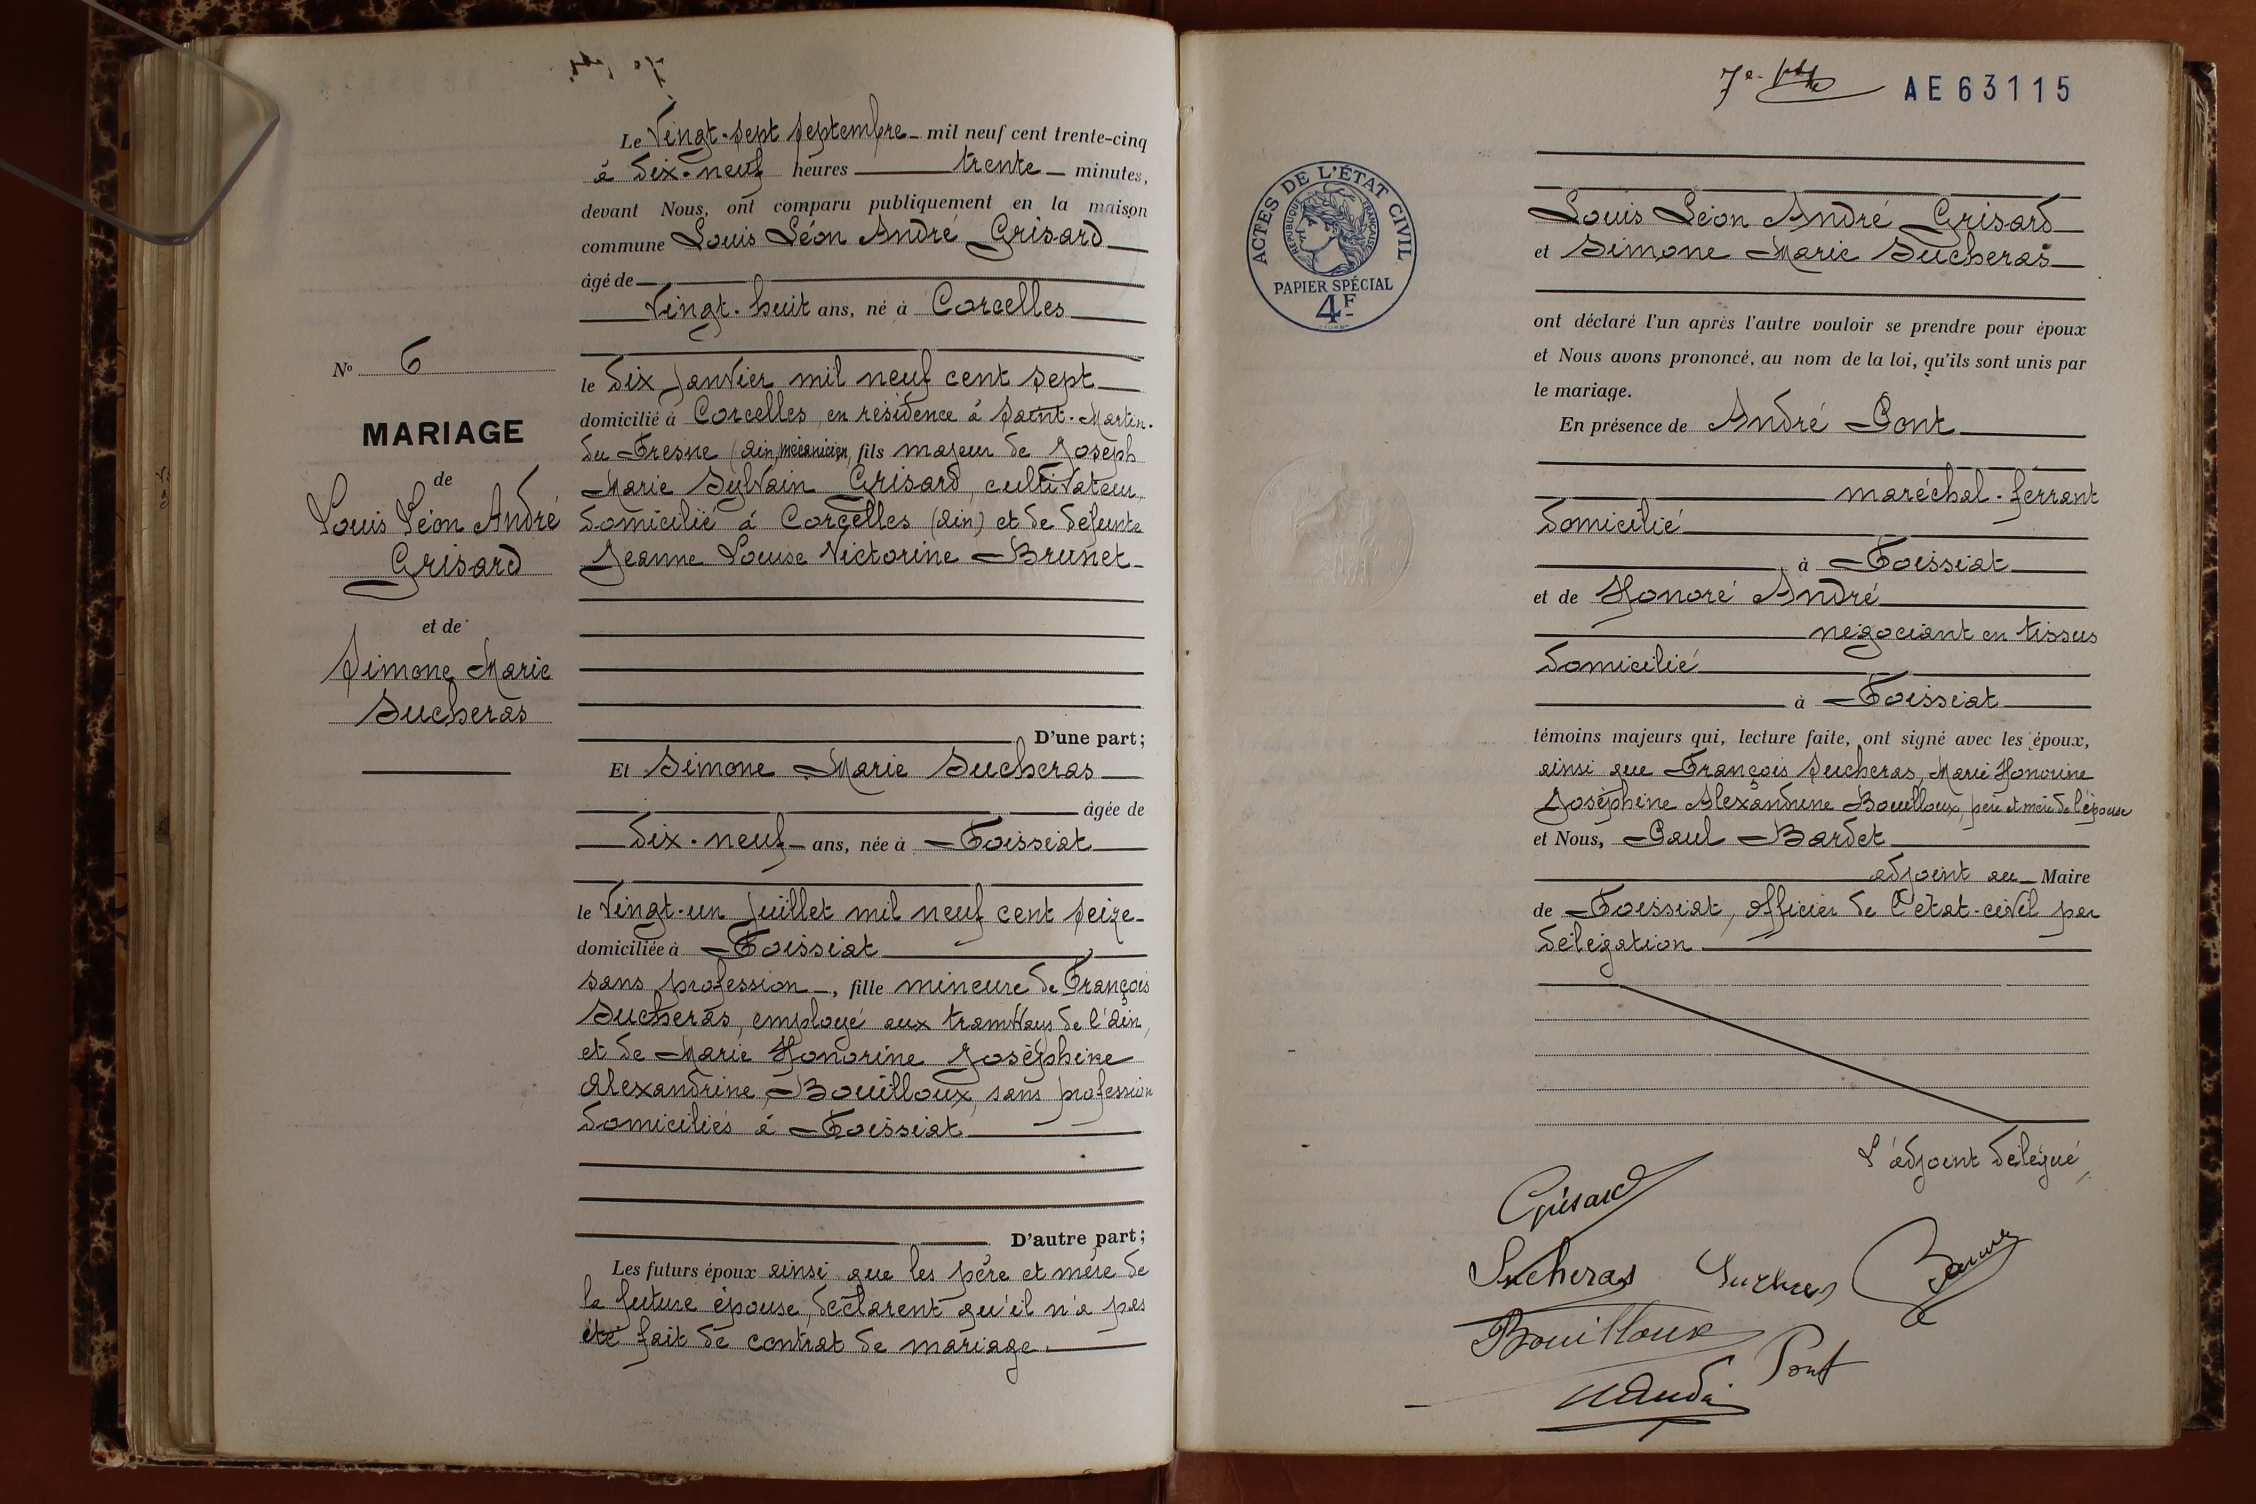 Le Vingt-sept Septembre mil neuf cent trente-cinq
à dix-neuf heures trente minutes,
devant Nous, ont comparu publiquement en la maison
commune Louis Léon André Grisard
âgé de
Vingt-huit ans, né à Corcelles
le dix Janvier mil neuf cent sept
domicilié à Corcelles, en résidence à Saint-Martin-
du Fresne (Ain) mécanicien, fils majeur de Joseph
Marie Sylvain Grisard, cultivateur,
domicilié à Corcelles (Ain) et de défunte
Jeanne Louise Victorine Brunet
D'une part;
Et Simone Marie Sucheras
âgée de
dix-neuf ans, née à Foissiat
le Vingt-un Juillet mil neuf cent seize
domiciliée à Foissiat
sans profession, fille mineure de François
Sucheras, employé aux tramways de l'Ain,
et de Marie Honorine Joséphine
Alexandrine Bouilloux, sans profession
domiciliés à Foissiat
D'autre part;
Les futurs époux ainsi que les père et mère de
la future épouse, déclarent qu'il n'a pas
été fait de contrat de mariage.
No 6
MARIAGE
de
Louis Léon André
Grisard
et de
Simone Marie
Sucheras
7e
AE63115
ACTES DE L'ÉTAT CIVIL
RÉPUBLIQUE FRANÇAISE
PAPIER SPÉCIAL
4F
Louis Léon André Grisard
et Simone Marie Sucheras
ont déclaré l'un après l'autre vouloir se prendre pour époux
et Nous avons prononcé, au nom de la loi, qu'ils sont unis par
le mariage.
En présence de André Pont
maréchal-ferrant
domicilié
à Foissiat
et de Honoré André
négociant en tissus
domicilié
à Foissiat
témoins majeurs qui, lecture faite, ont signé avec les époux,
ainsi que François Sucheras, Marie Honorine
Joséphine Alexandrine Bouilloux, père et mère de l'épouse
et Nous, Paul Bardet
adjoint au Maire
de Foissiat, officier de l'état-civil par
délégation
L'adjoint délégué,
Grisard
Sucheras
Bouilloux
Pont